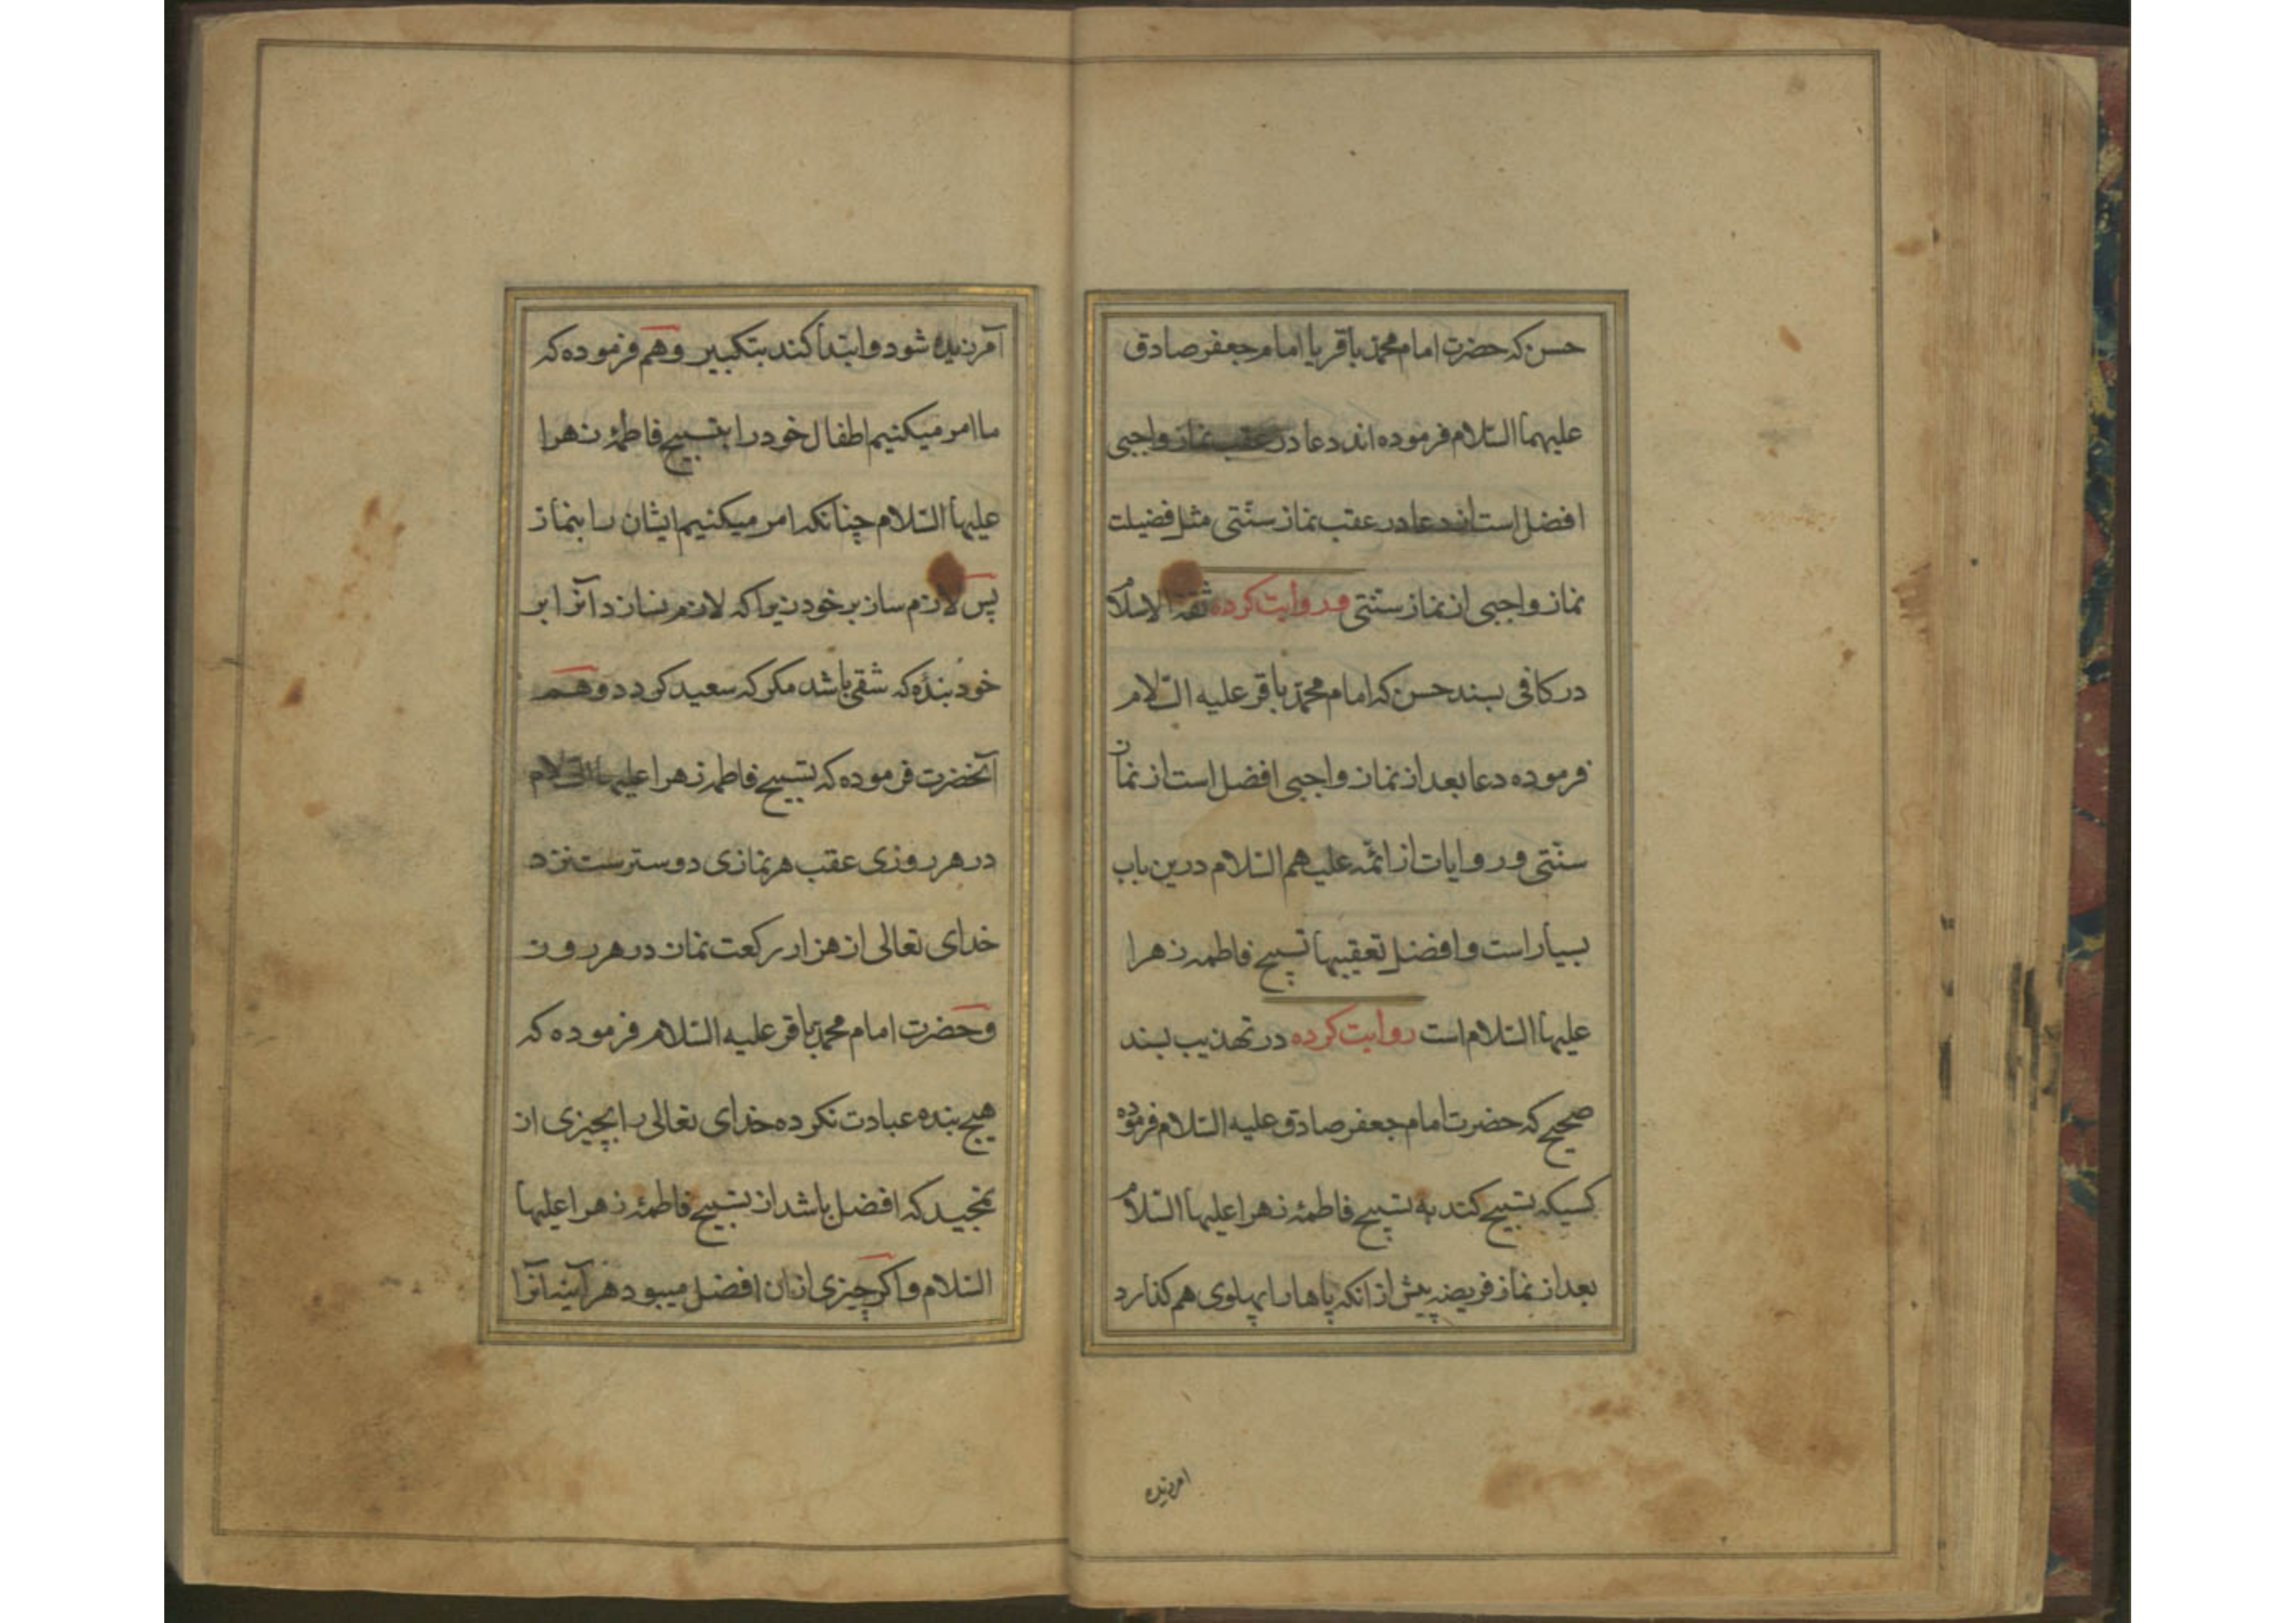 حسن که حضرت امام محمد باقر یا امام جعفر صادق
علیهما السّلام فرموده اند دعا در عقب نماز واجبی
افضل است از دعا در عقب نماز سنّتی مثل فضیلت
نماز واجبی از نماز سنّتی و روایت کرده ثقة الاسلام
در کافی بسند حسن که امام محمّد باقر علیه السّلام
فرموده دعا بعد از نماز واجبی افضل است از نماز
سنّتی و روایات از ائمّه علیهم السّلام درین باب
بسیار است و افضل تعقیبها تسبیح فاطمه زهرا
علیها السّلام است روایت کرده در تهذیب بسند
صحیح که حضرت امام جعفر صادق علیه السّلام فرموده
کسیکه تسبیح کند به تسبیح فاطمهٔ زهرا علیها السّلام
بعد از نماز فریضه پیش از انکه پاها را بپهلوی هم کذارد
امرزیده
آمرزیده شود و ابتدأ کند بتکبیر و هم فرموده که
ما امر میکنیم اطفال خود را بتسبیح فاطمهٔ زهرا
علیها السّلام چنانکه امر میکنیم ایشان را بنماز
پس لازم ساز بر خود زیرا که لازم نسازد آنرا بر
خود بندهٔ که شقی باشد مکر که سعید کردد و هم
آنحضرت فرموده که تسبیح فاطمه زهرا علیها السّلام
در هر روزی عقب هر نمازی دوسترست نزد
خدای تعالی از هزار رکعت نماز در هر روز
و حضرت امام محمد باقر علیه السّلام فرموده که
هیچ بنده عبادت نکرده خدای تعالی را بچیزی از
تمجید که افضل باشد از تسبیح فاطمهٔ زهرا علیها
السّلام و اکر چیزی از ان افضل میبود هرآینه آنرا